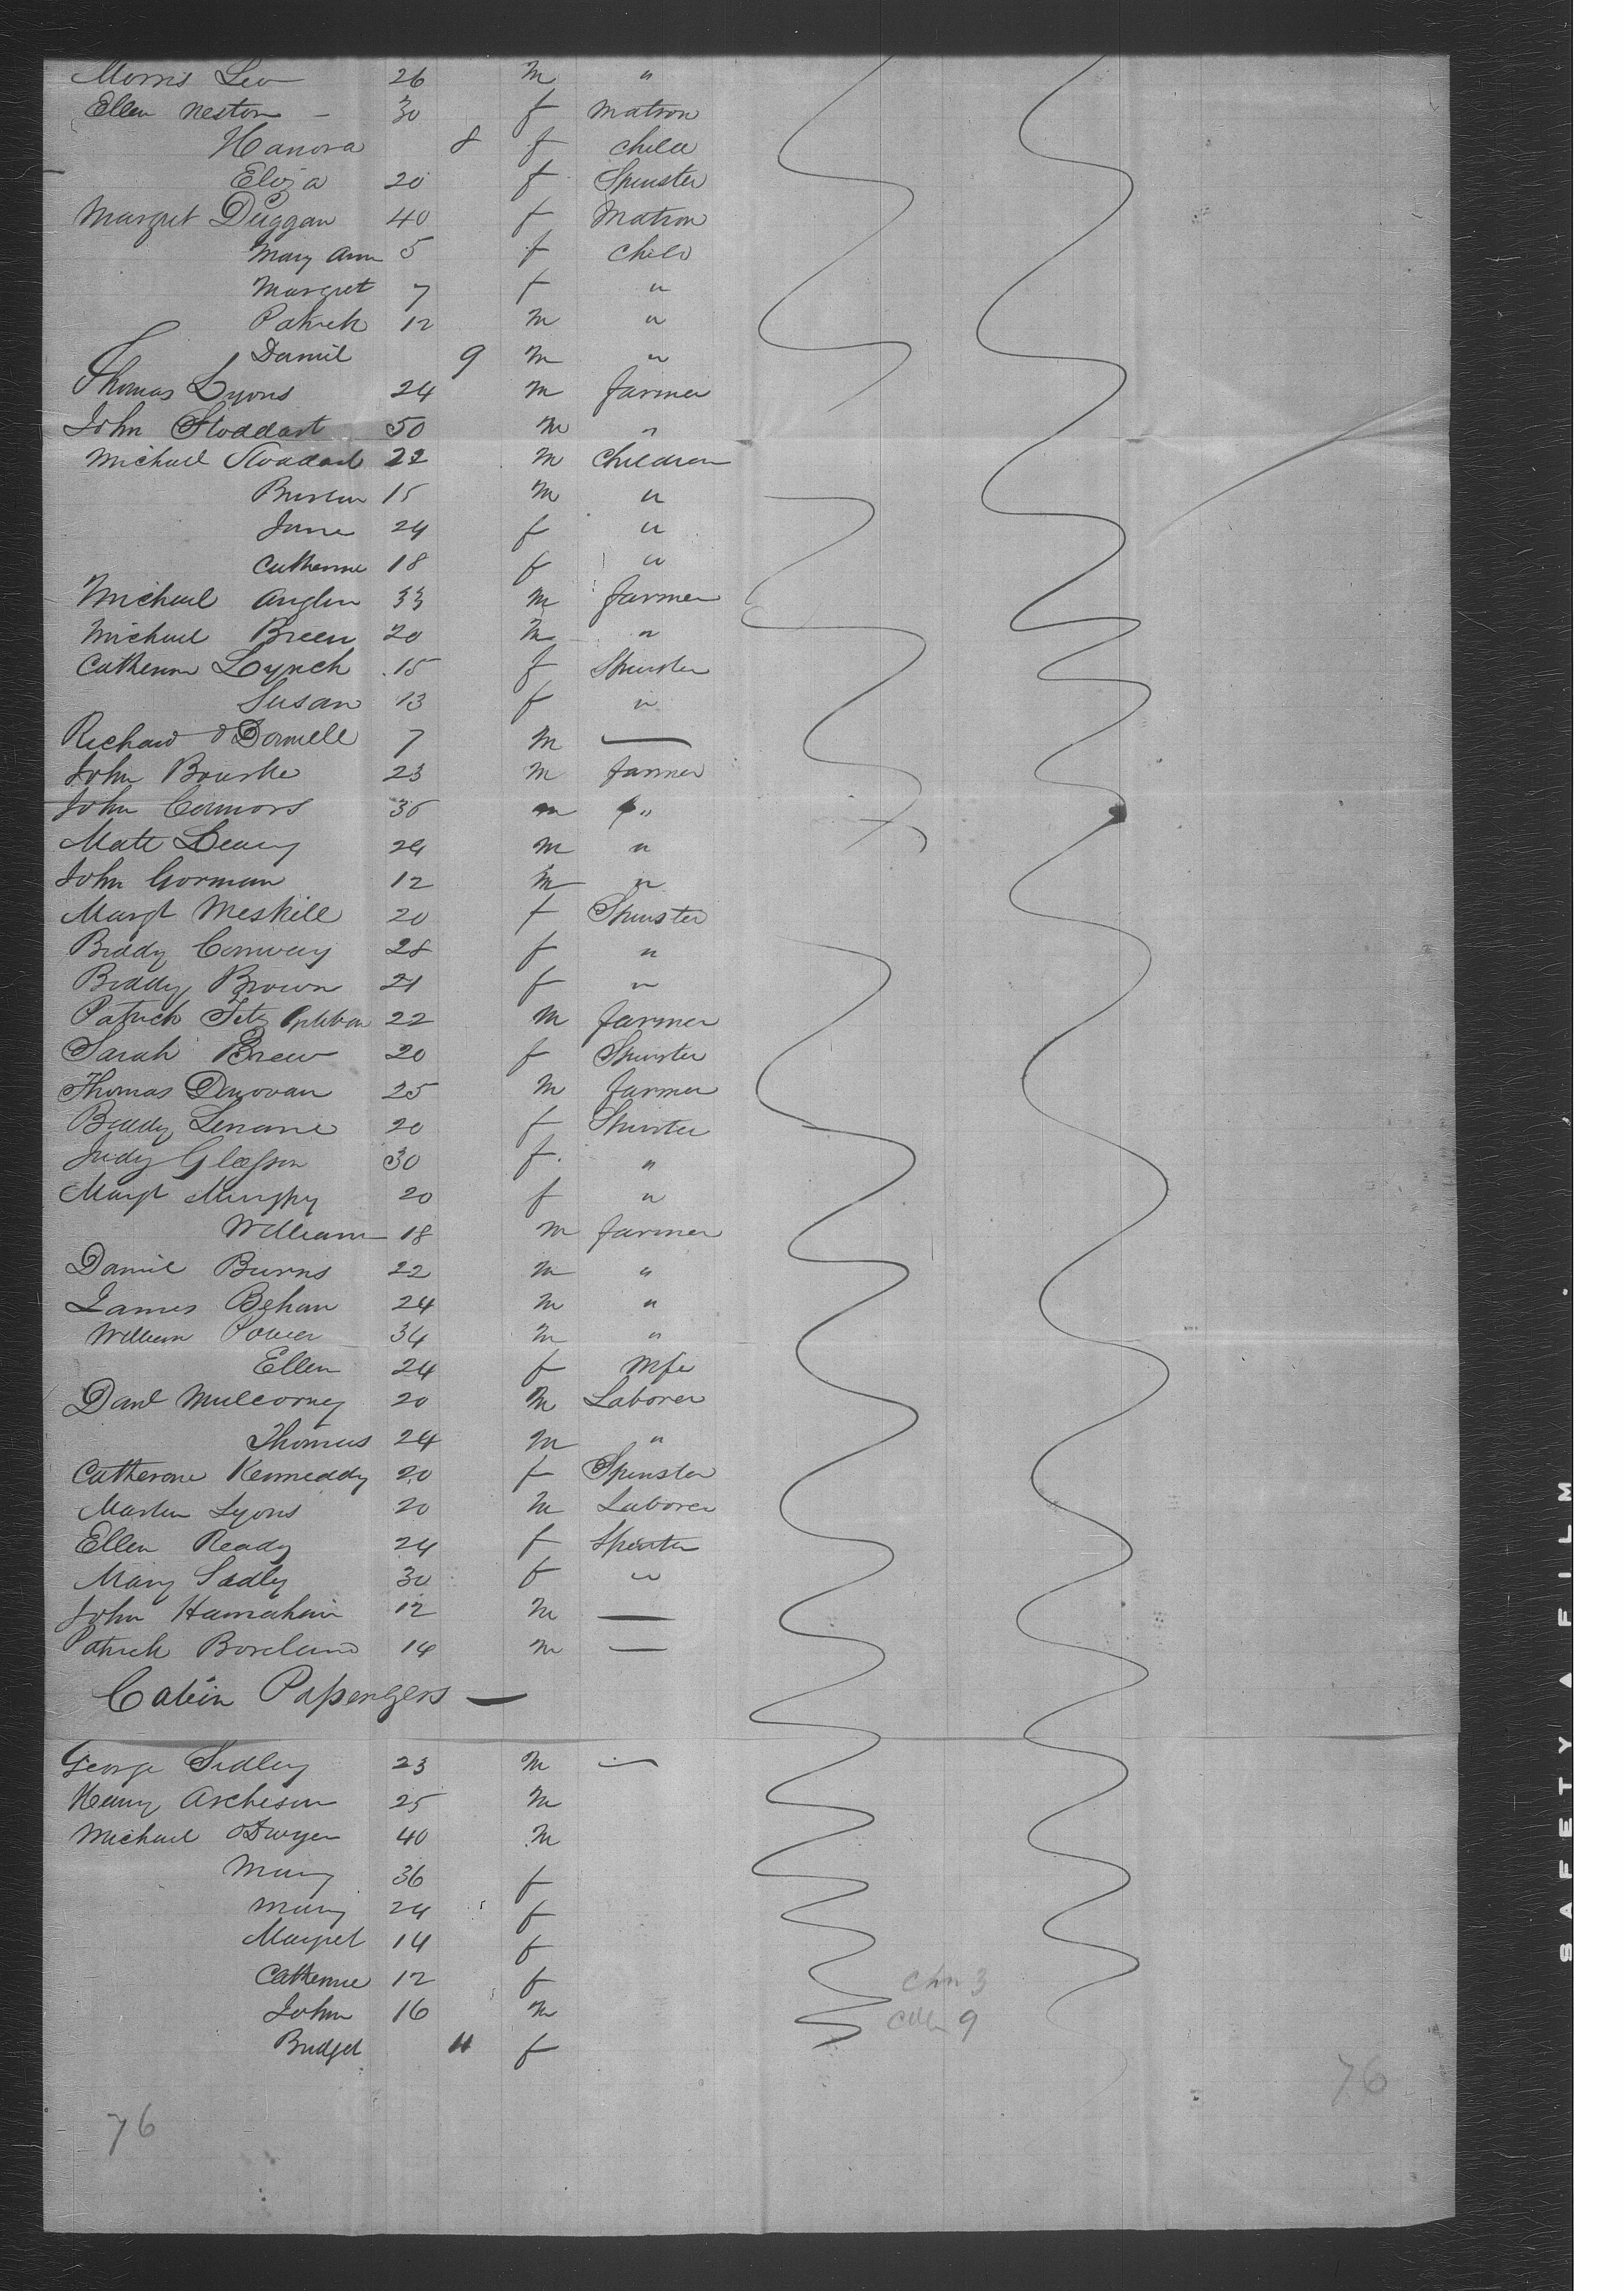 Morris Leo 26 m "
Ellen Neston - 30 f Matron
Hanora 8 f child
Eliza 20 f Spinster
Margret Duggan 40 f Matron
Mary Ann 5 f child
Margret 7 f "
Patrick 12 m "
Daniel 9 m "
Thomas Lyons 24 m farmer
John Stoddart 50 m "
Michael Stoddart 22 m Children
15 m "
Jane 24 f "
Catherine 18 f "
Michael Anglin 33 m farmer
Michael Breen 20 m "
Catherine Lynch 15 f Spinster
Susan 13 f "
Richard O'Donnell 7 m —
John Bourke 23 m farmer
John Connors 36 m "
Matt Leary 24 m "
John Gorman 12 m "
Margt Meskill 20 f Spinster
Biddy Conway 28 f "
Biddy Brown 21 f "
Patrick Fitz 22 m farmer
Sarah Brew 20 f Spinster
Thomas Donovan 25 m farmer
Biddy Lenane 20 f Spinster
Judy Gleeson 30 f. "
Margt Murphy 20 f "
William 18 m farmer
Daniel Burns 22 m "
James Behan 24 m "
William Power 34 m "
Ellen 24 f Wife
Danl Mulcorney 20 m Laborer
Thomas 24 m "
Catherine Kenneddy 20 f Spinster
Martin Lyons 20 m Laborer
Ellen Ready 24 f Spinster
Mary Sedly 30 f "
John Hannahan 12 m —
Patrick Boreland 14 m —
Cabin Passengers —
George Sidley 23 m —
Henry Archeson 25 m
Michael O'Dwyer 40 m
Mary 36 f
Mary 24 f
Margret 14 f
Catherine 12 f
chn 3
John 16 m
9
Bridget 11 f
76
76
SAFETY A FILM